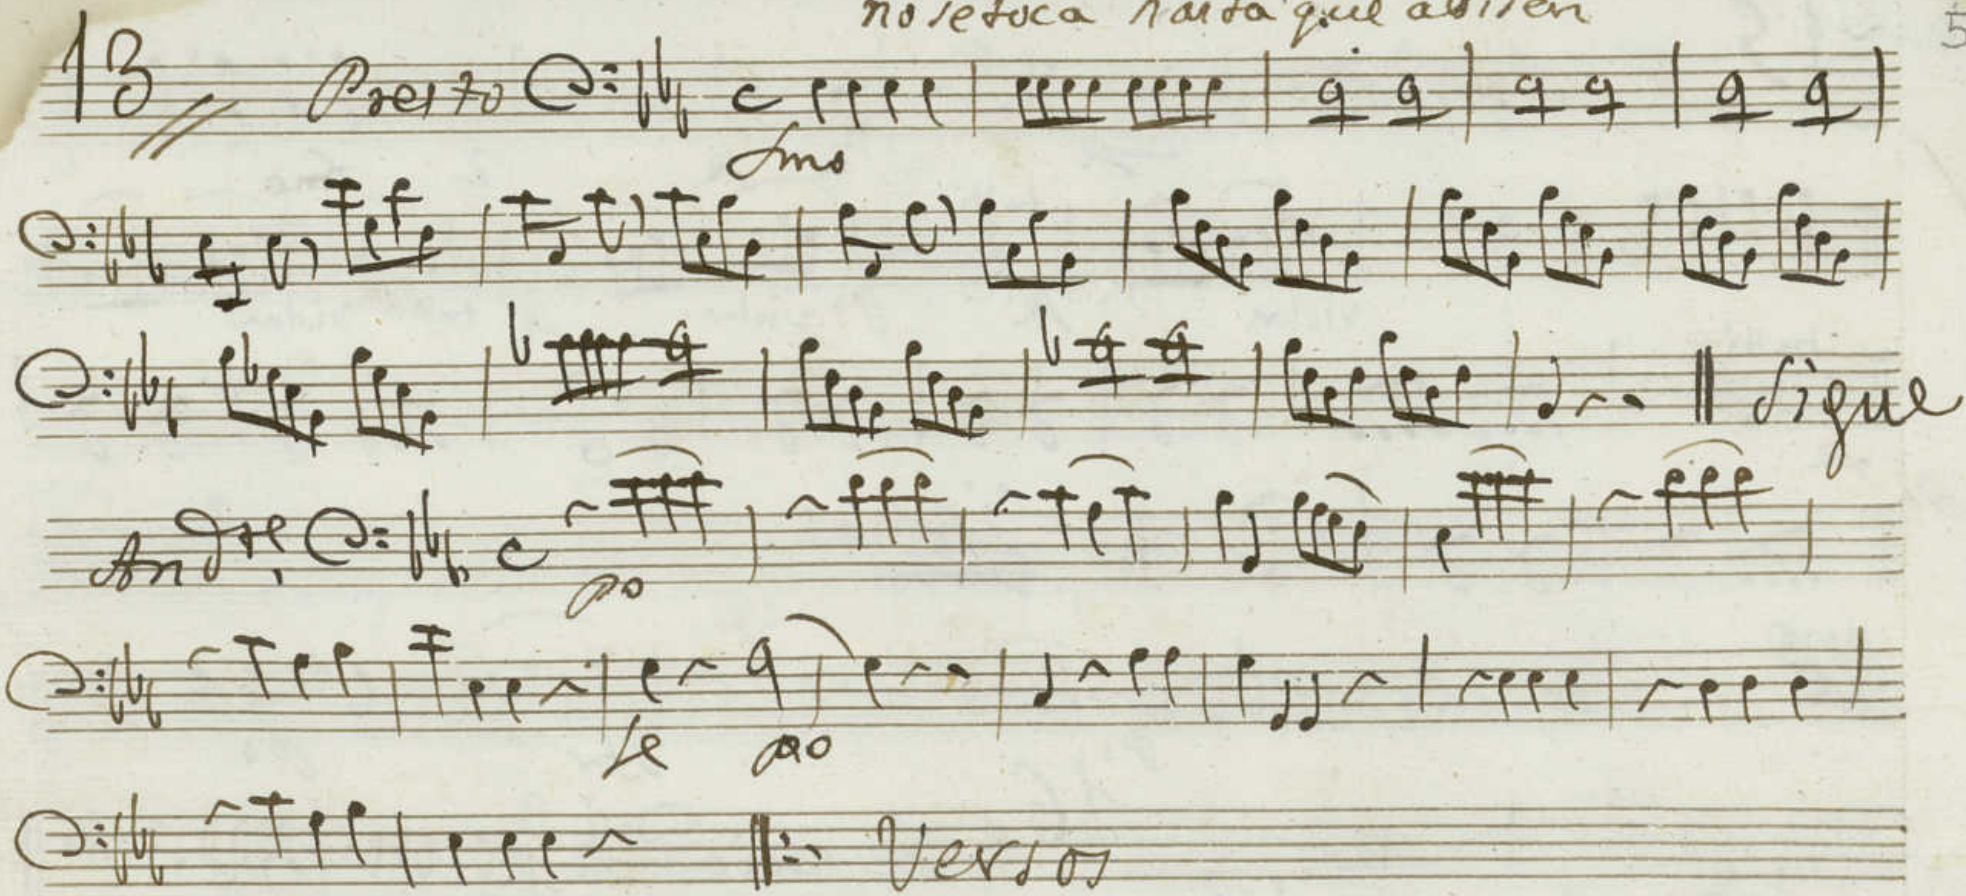 no se toca hasta que avisen
5
13 Presto
fmo
Sigue
Andte po
fe po
Versos